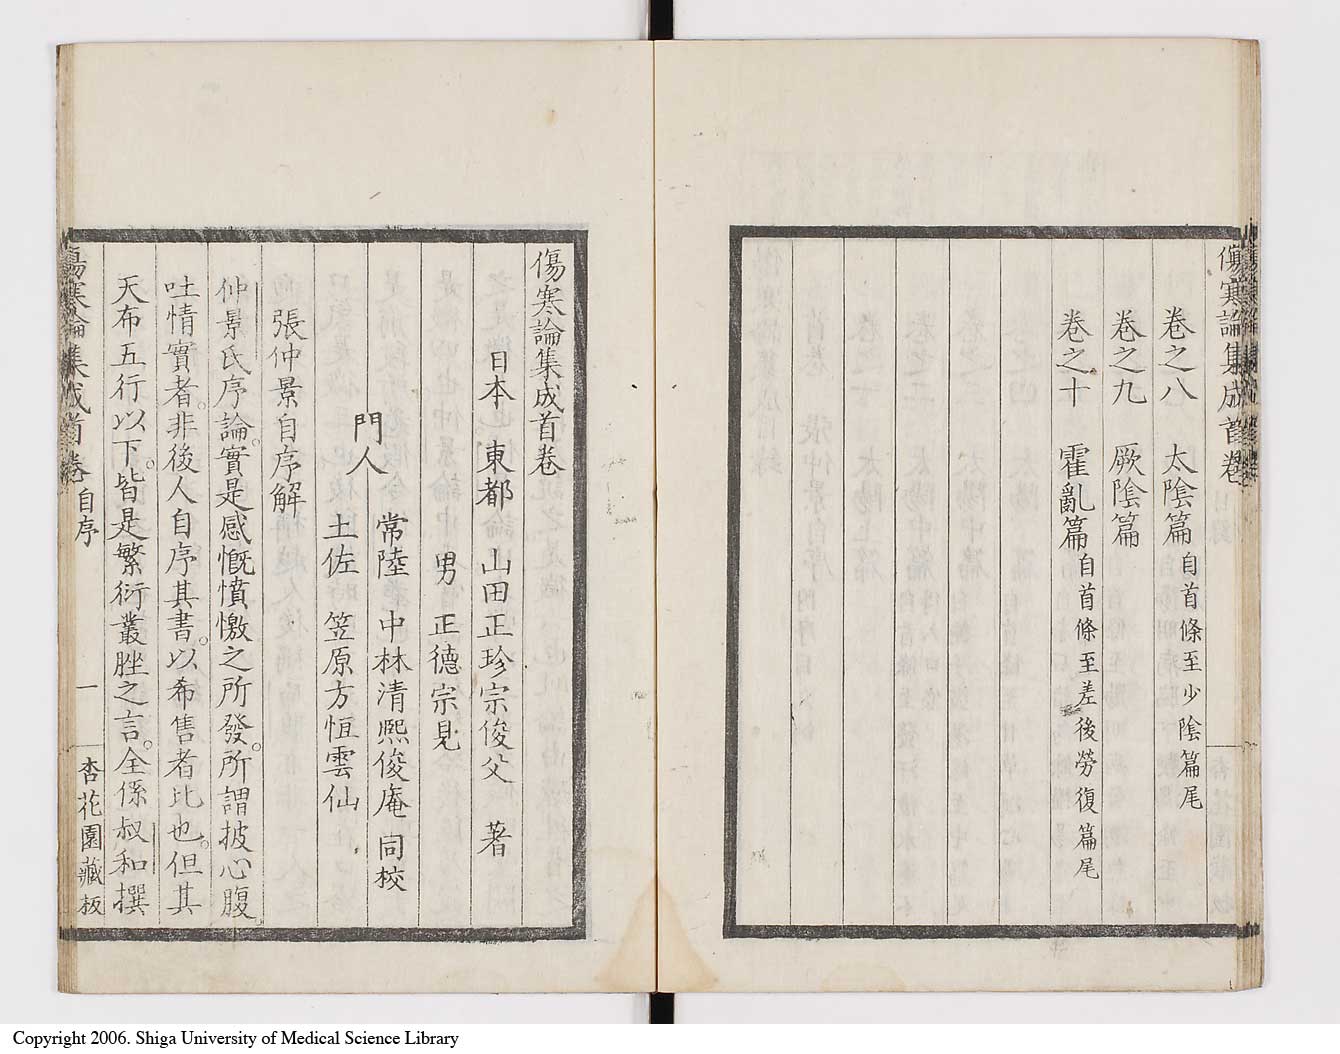 傷寒論集成首卷
卷之八　太陰篇自首條至少陰篇尾
卷之九　厥陰篇
卷之十　霍亂篇自首條至差後勞復篇尾
傷寒論集成首卷
日本　東都　山田正珍宗俊父　著
男　正德宗見
門人　常陸　中林清熙俊庵　同校
土佐　笠原方恒雲仙
張仲景自序解
仲景氏序論。實是感慨憤懣之所發。所謂披心腹
吐情實者。非後人自序其書。以希售者比也。但其
天布五行以下。皆是繁衍叢脞之言。全係叔和撰
傷寒論集成首卷　自序　一　杏花園藏板
Copyright 2006. Shiga University of Medical Science Library